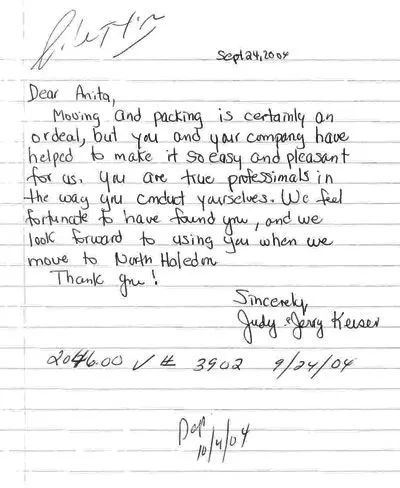 Sept 24, 2004
Dear Anita,
Moving and packing is certainly an
ordeal, but you and your company have
helped to make it so easy and pleasant
for us. You are true professionals in
the way you conduct yourselves. We feel
fortunate to have found you, and we
look forward to using you when we
move to North Haledon
Thank you!
Sincerely,
Judy & Jerry Keiser
2046.00 ✓ # 3902 9/24/04
Dep
10/4/04